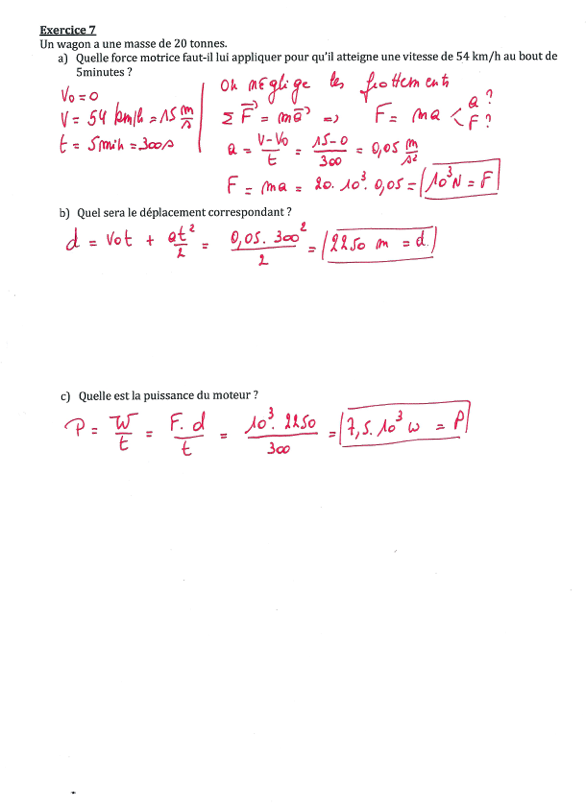 Exercice 7
Un wagon a une masse de 20 tonnes.
a) Quelle force motrice faut-il lui appliquer pour qu'il atteigne une vitesse de 54 km/h au bout de
5minutes ?
V₀ = 0
V = 54 km/h = 15 m/s
t = 5 min = 300 s
On néglige les frottements
Σ F⃗ = m a⃗ => F = ma < a ? F ?
a = V-V₀/t = 15-0/300 = 0,05 m/s²
F = ma = 20. 10³. 0,05 = 10³ N = F
b) Quel sera le déplacement correspondant ?
d = V₀t + at²/2 = 0,05. 300²/2 = 2250 m = d
c) Quelle est la puissance du moteur ?
P = W/t = F. d/t = 10³. 2250/300 = 7,5. 10³ W = P